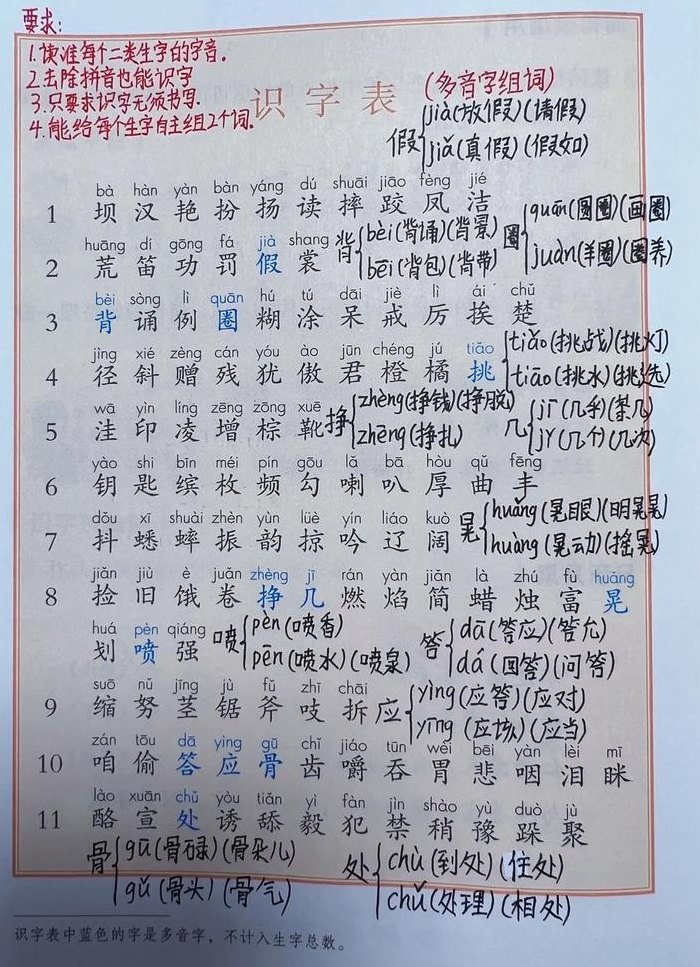 要求:
1.读准每个二类生字的字音。
2.去除拼音也能识字
3.只要求识字无须书写.
4.能给每个生字自主组2个词.
识字表
(多音字组词)
假 jià(放假)(请假)
jiǎ(真假)(假如)
bà hàn yàn bàn yáng dú shuāi jiāo fèng jié
1 坝 汉 艳 扮 扬 读 摔 跤 凤 洁
圈 quān(圆圈)(画圈)
juàn(羊圈)(圈养)
huāng dí gōng fá jià shang
2 荒 笛 功 罚 假 裳
背 bèi(背诵)(背景)
bēi(背包)(背带)
bèi sòng lì quān hú tú dāi jiè lì ái chǔ
3 背 诵 例 圈 糊 涂 呆 戒 厉 挨 楚
jìng xié zèng cán yóu ào jūn chéng jú tiǎo
4 径 斜 赠 残 犹 傲 君 橙 橘 挑
tiǎo(挑战)(挑灯)
tiāo(挑水)(挑选)
wā yìn líng zēng zōng xuē
5 洼 印 凌 增 棕 靴
挣 zhèng(挣钱)(挣脱)
zhēng(挣扎)
几 jī(几乎)(茶几)
jǐ(几个)(几次)
yào shi bīn méi pín gōu lǎ bā hòu qǔ fēng
6 钥 匙 缤 枚 频 勾 喇 叭 厚 曲 丰
dǒu xī shuài zhèn yùn lüè yín liáo kuò
7 抖 蟋 蟀 振 韵 掠 吟 辽 阔
晃 huǎng(晃眼)(明晃晃)
huàng(晃动)(摇晃)
jiǎn jiù è juǎn zhèng jī rán yàn jiǎn là zhú fù huǎng
8 捡 旧 饿 卷 挣 几 燃 焰 简 蜡 烛 富 晃
huá pèn qiáng
划 喷 强
喷 pèn(喷香)
pēn(喷水)(喷泉)
答 dā(答应)(答允)
dá(回答)(问答)
suō nǔ jīng jù fǔ zhī chāi
9 缩 努 茎 锯 斧 吱 拆
应 yìng(应答)(应对)
yīng(应该)(应当)
zán tōu dā yìng gū chǐ jiáo tūn wèi bēi yàn lèi mī
10 咱 偷 答 应 骨 齿 嚼 吞 胃 悲 咽 泪 眯
lào xuān chǔ yòu tiǎn yì fàn jìn shào yù duò jù
11 酪 宣 处 诱 舔 毅 犯 禁 稍 豫 跺 聚
骨 gū(骨碌)(骨朵儿)
gǔ(骨头)(骨气)
处 chù(到处)(住处)
chǔ(处理)(相处)
识字表中蓝色的字是多音字，不计入生字总数。